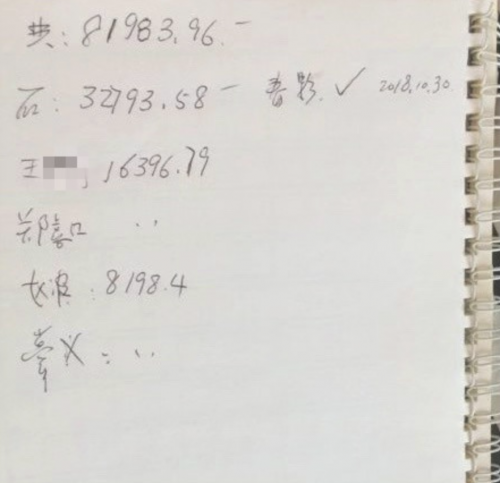 共: 81983.96.
石: 32793.58 春影 ✓ 2018.10.30.
王 16396.79
郑 ..
8198.4
..